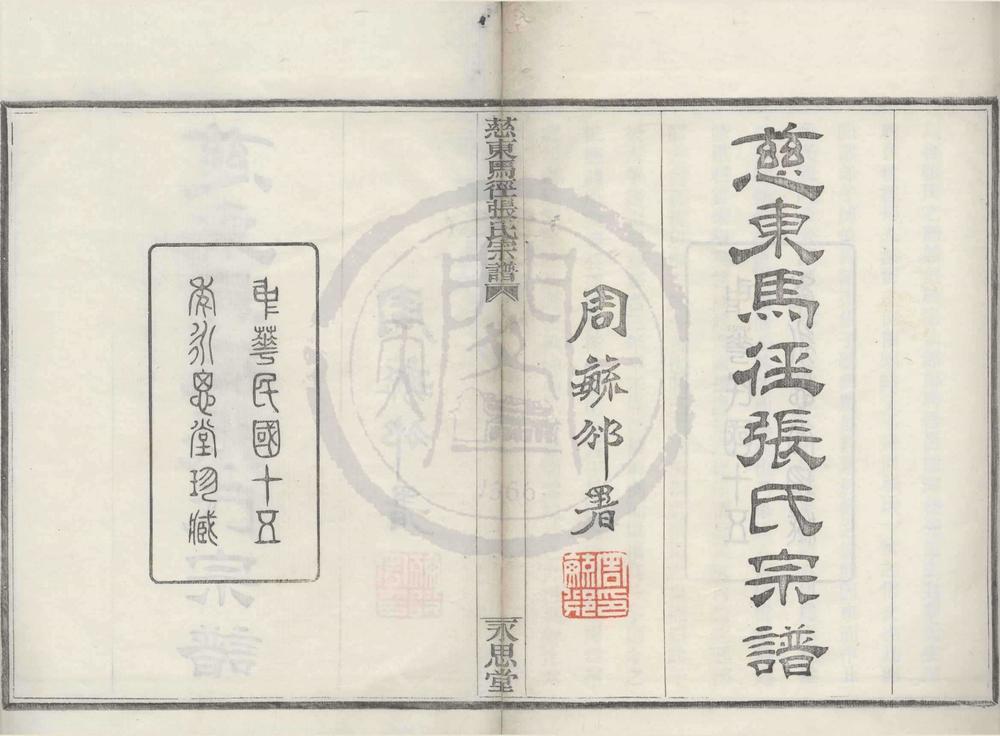 慈東馬徑張氏宗譜
周毓邠署
周印毓邠
慈東馬徑張氏宗譜
永思堂
中華民國十五
年永思堂珍藏
1366